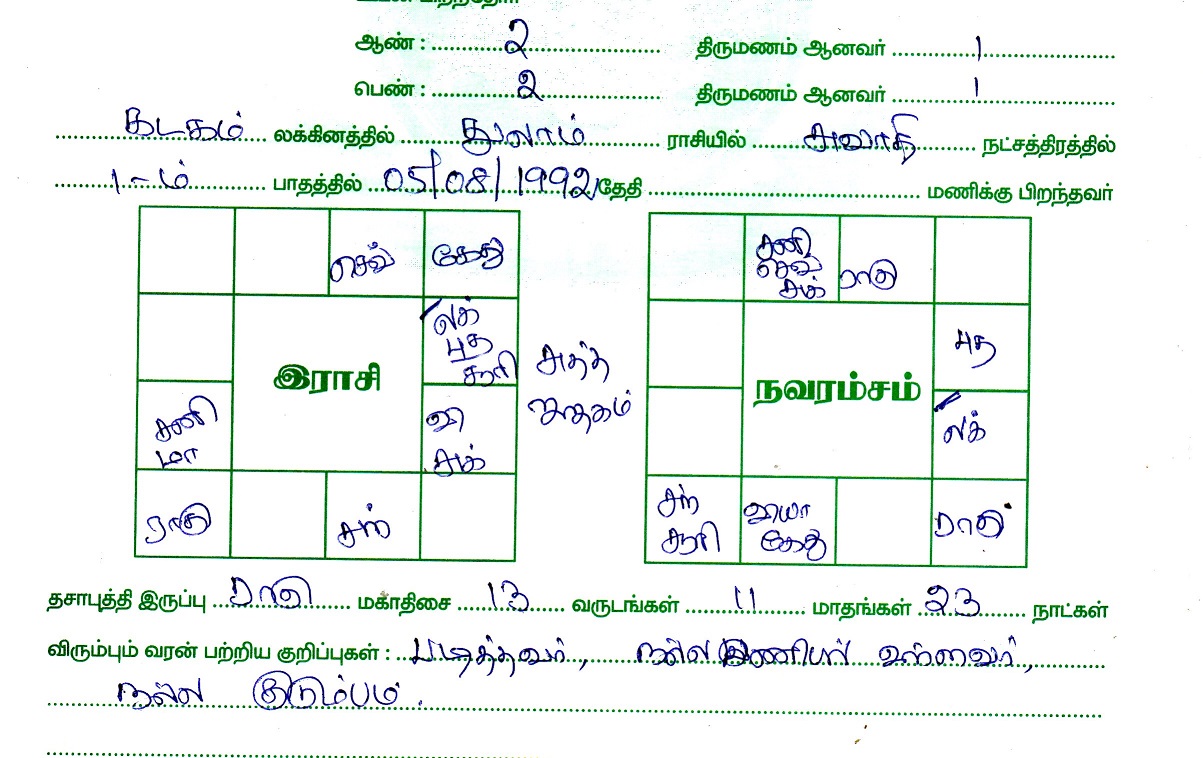 ஆண் : 2 திருமணம் ஆனவர் 1
பெண் : 2 திருமணம் ஆனவர் 1
கடகம் லக்கினத்தில் துலாம் ராசியில் சுவாதி நட்சத்திரத்தில்
1-ம் பாதத்தில் 05/08/1992 தேதி மணிக்கு பிறந்தவர்
செவ் கேது
சனி செவ் சுக் ராகு
லக் புத சூரி
புத
இராசி
நவரம்சம்
சுத்த ஜாதகம்
சனி மா
வி சுக்
லக்
ராகு சந்
சந் சூரி கேது
தசாபுத்தி இருப்பு ராகு மகாதிசை 13 வருடங்கள் 11 மாதங்கள் 23 நாட்கள்
விரும்பும் வரன் பற்றிய குறிப்புகள் : படித்தவர், நல்ல பணியில் உள்ளவர்,
நல்ல குடும்பம்.